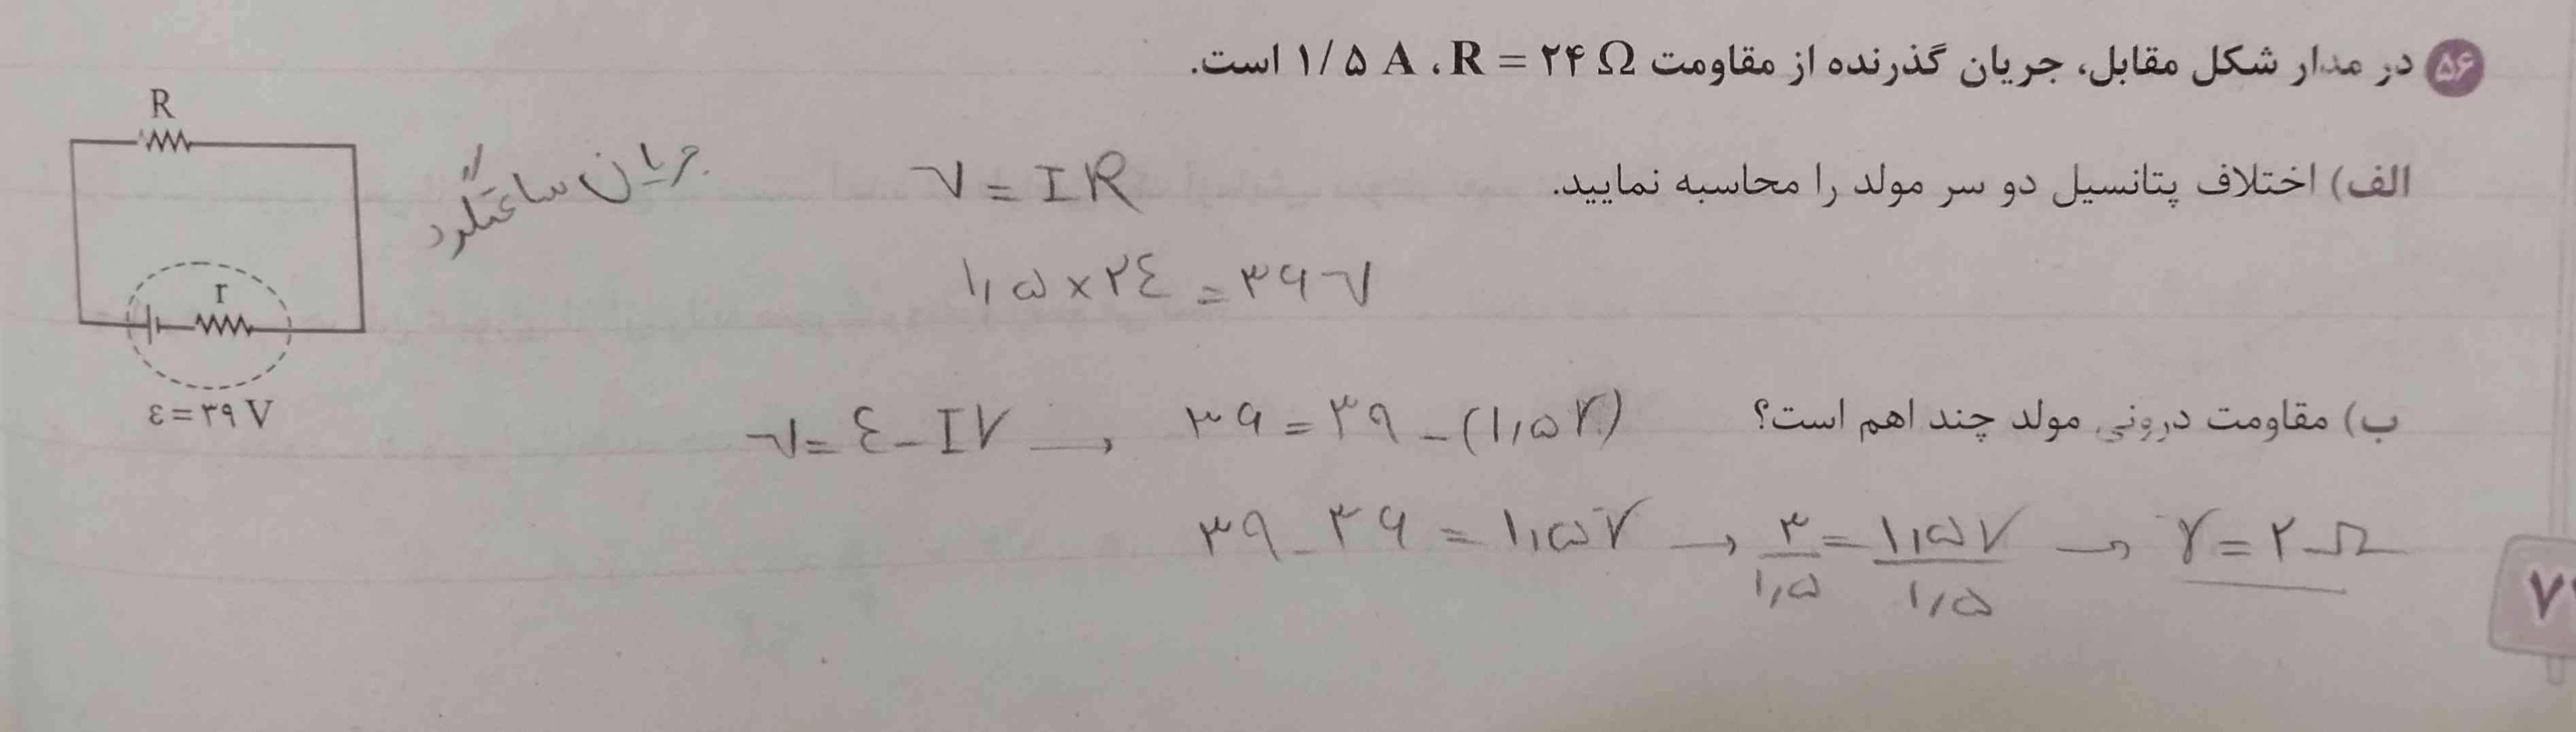 ۵۶ در مدار شکل مقابل، جریان گذرنده از مقاومت R = ۲۴ Ω، ۱/۵ A است.
الف) اختلاف پتانسیل دو سر مولد را محاسبه نمایید.
V = IR
۱,۵ × ۲٤ = ۳۶ V
جریان ساعتگرد
R
r
ε = ۳۹ V
ب) مقاومت درونی مولد چند اهم است؟
V = ε - Ir → ۳۶ = ۳۹ - (۱,۵r)
۳۹ - ۳۶ = ۱,۵r → ۳/۱,۵ = ۱,۵r/۱,۵ → r = ۲ Ω